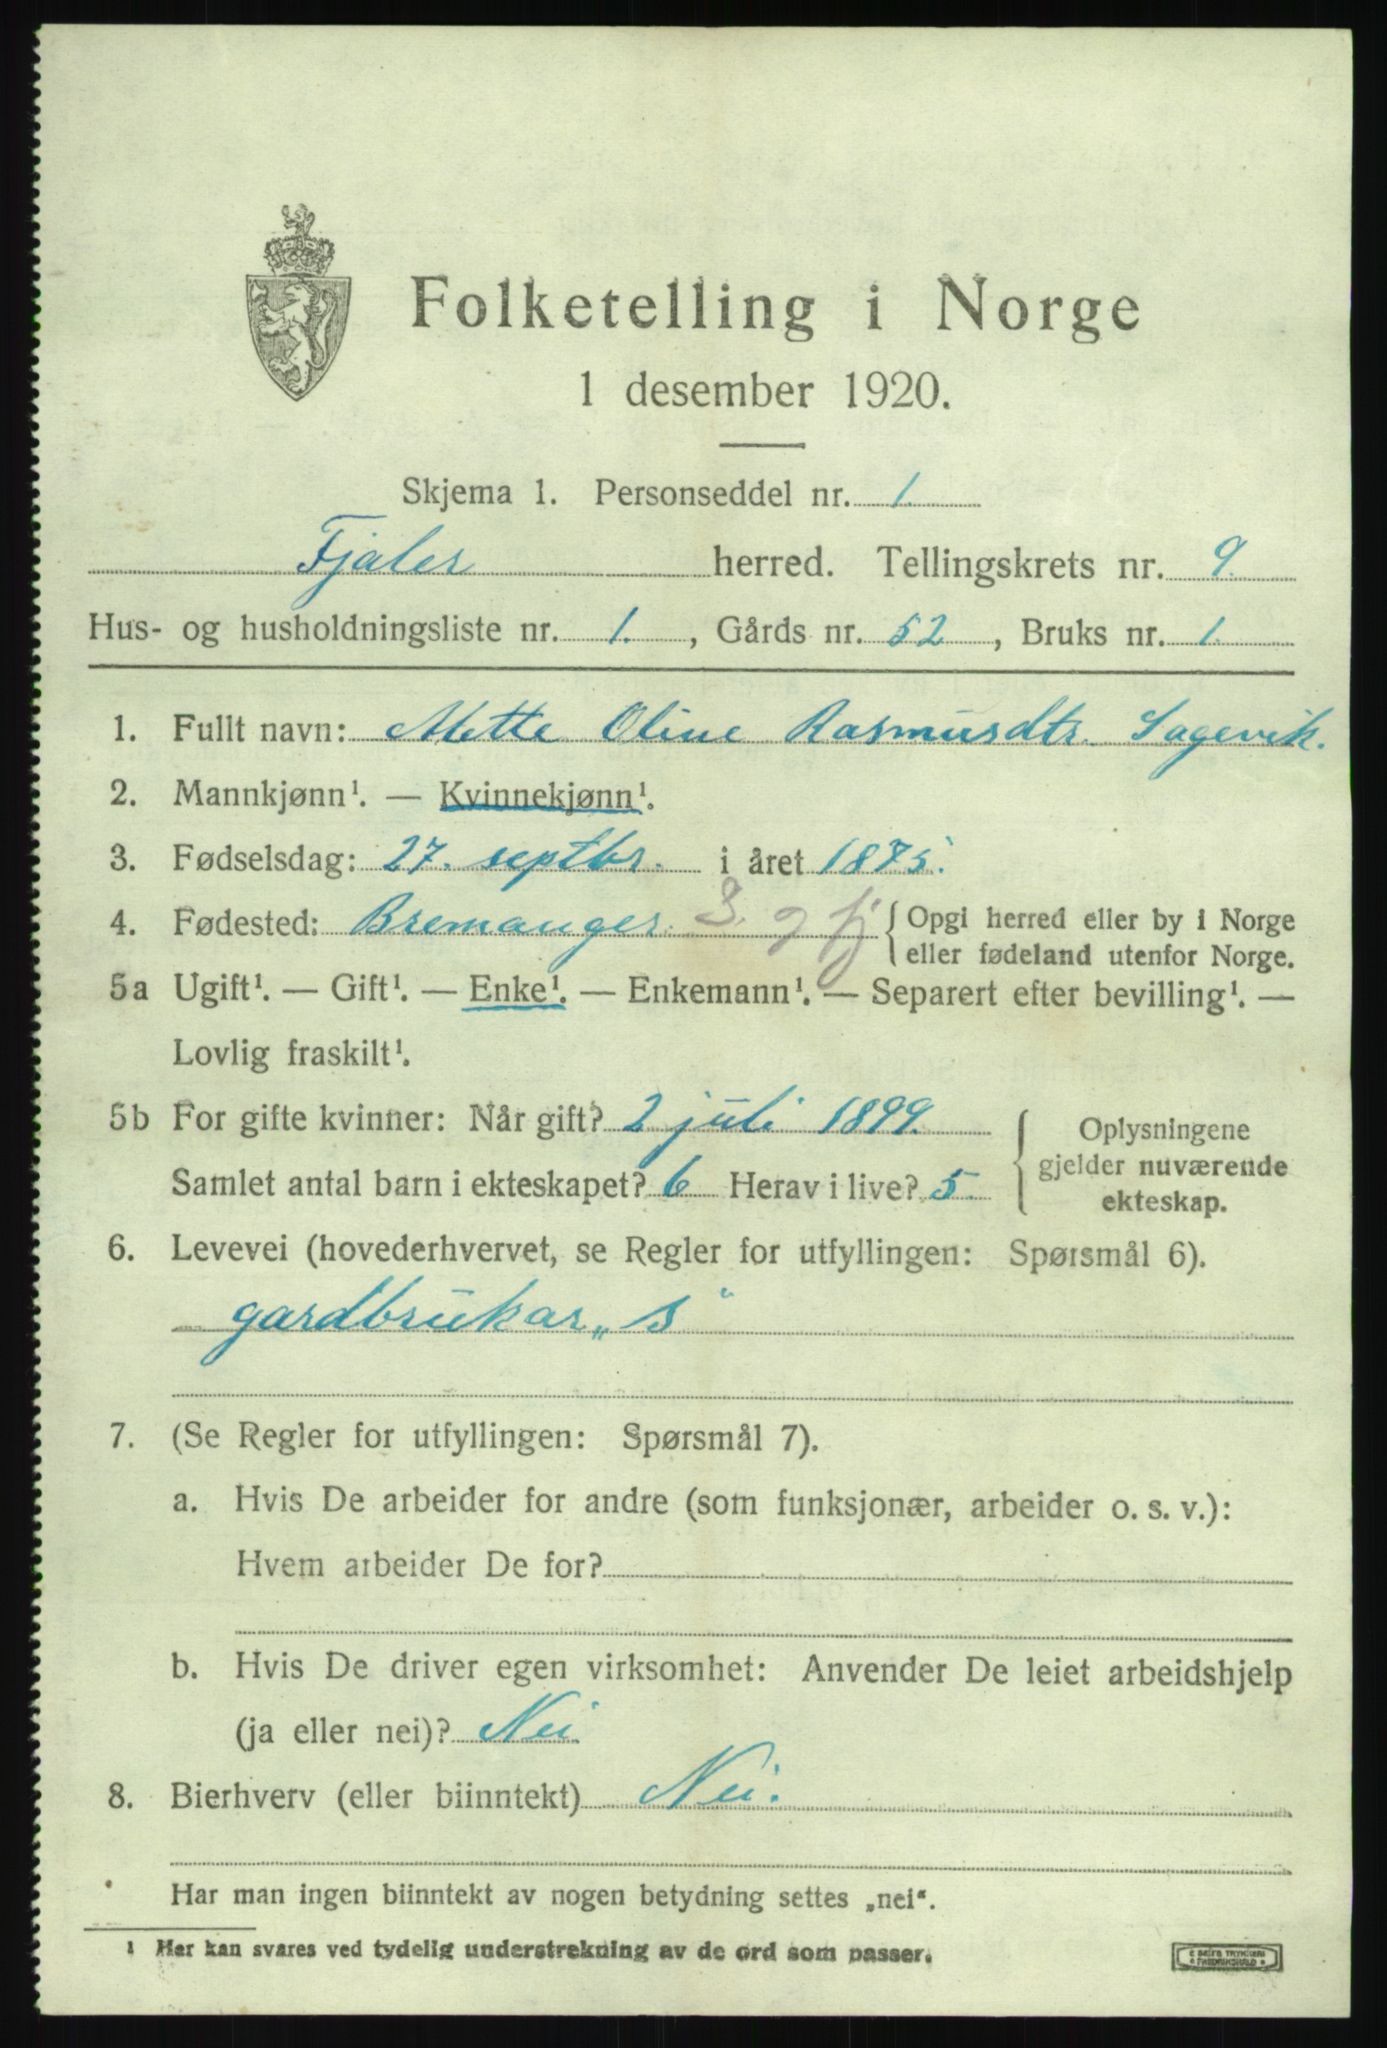 Folketelling i Norge
1 desember 1920.
Skjema 1. Personseddel nr. 1.
Fjaler herred. Tellingskrets nr. 9.
Hus- og husholdningsliste nr. 1., Gårds nr. 52, Bruks nr. 1.
1. Fullt navn: Mette Oline Rasmusdtr. Sagevik.
2. Mannkjønn¹. — Kvinnekjønn¹.
3. Fødselsdag: 27. septbr. i året 1875.
4. Fødested: Bremanger. S. og fj { Opgi herred eller by i Norge
eller fødeland utenfor Norge.
5a Ugift¹. — Gift¹. — Enke¹. — Enkemann¹. — Separert efter bevilling¹. —
Lovlig fraskilt¹.
5b For gifte kvinner: Når gift? 2 juli 1899.
Samlet antal barn i ekteskapet? 6 Herav i live? 5.
Oplysningene
gjelder nuværende
ekteskap.
6. Levevei (hovederhvervet, se Regler for utfyllingen: Spørsmål 6).
gardbrukar „s“
7. (Se Regler for utfyllingen: Spørsmål 7).
a. Hvis De arbeider for andre (som funksjonær, arbeider o. s. v.):
Hvem arbeider De for?
b. Hvis De driver egen virksomhet: Anvender De leiet arbeidshjelp
(ja eller nei)? Nei.
8. Bierhverv (eller biinntekt) Nei.
Har man ingen biinntekt av nogen betydning settes „nei“.
¹ Her kan svares ved tydelig understrekning av de ord som passer.